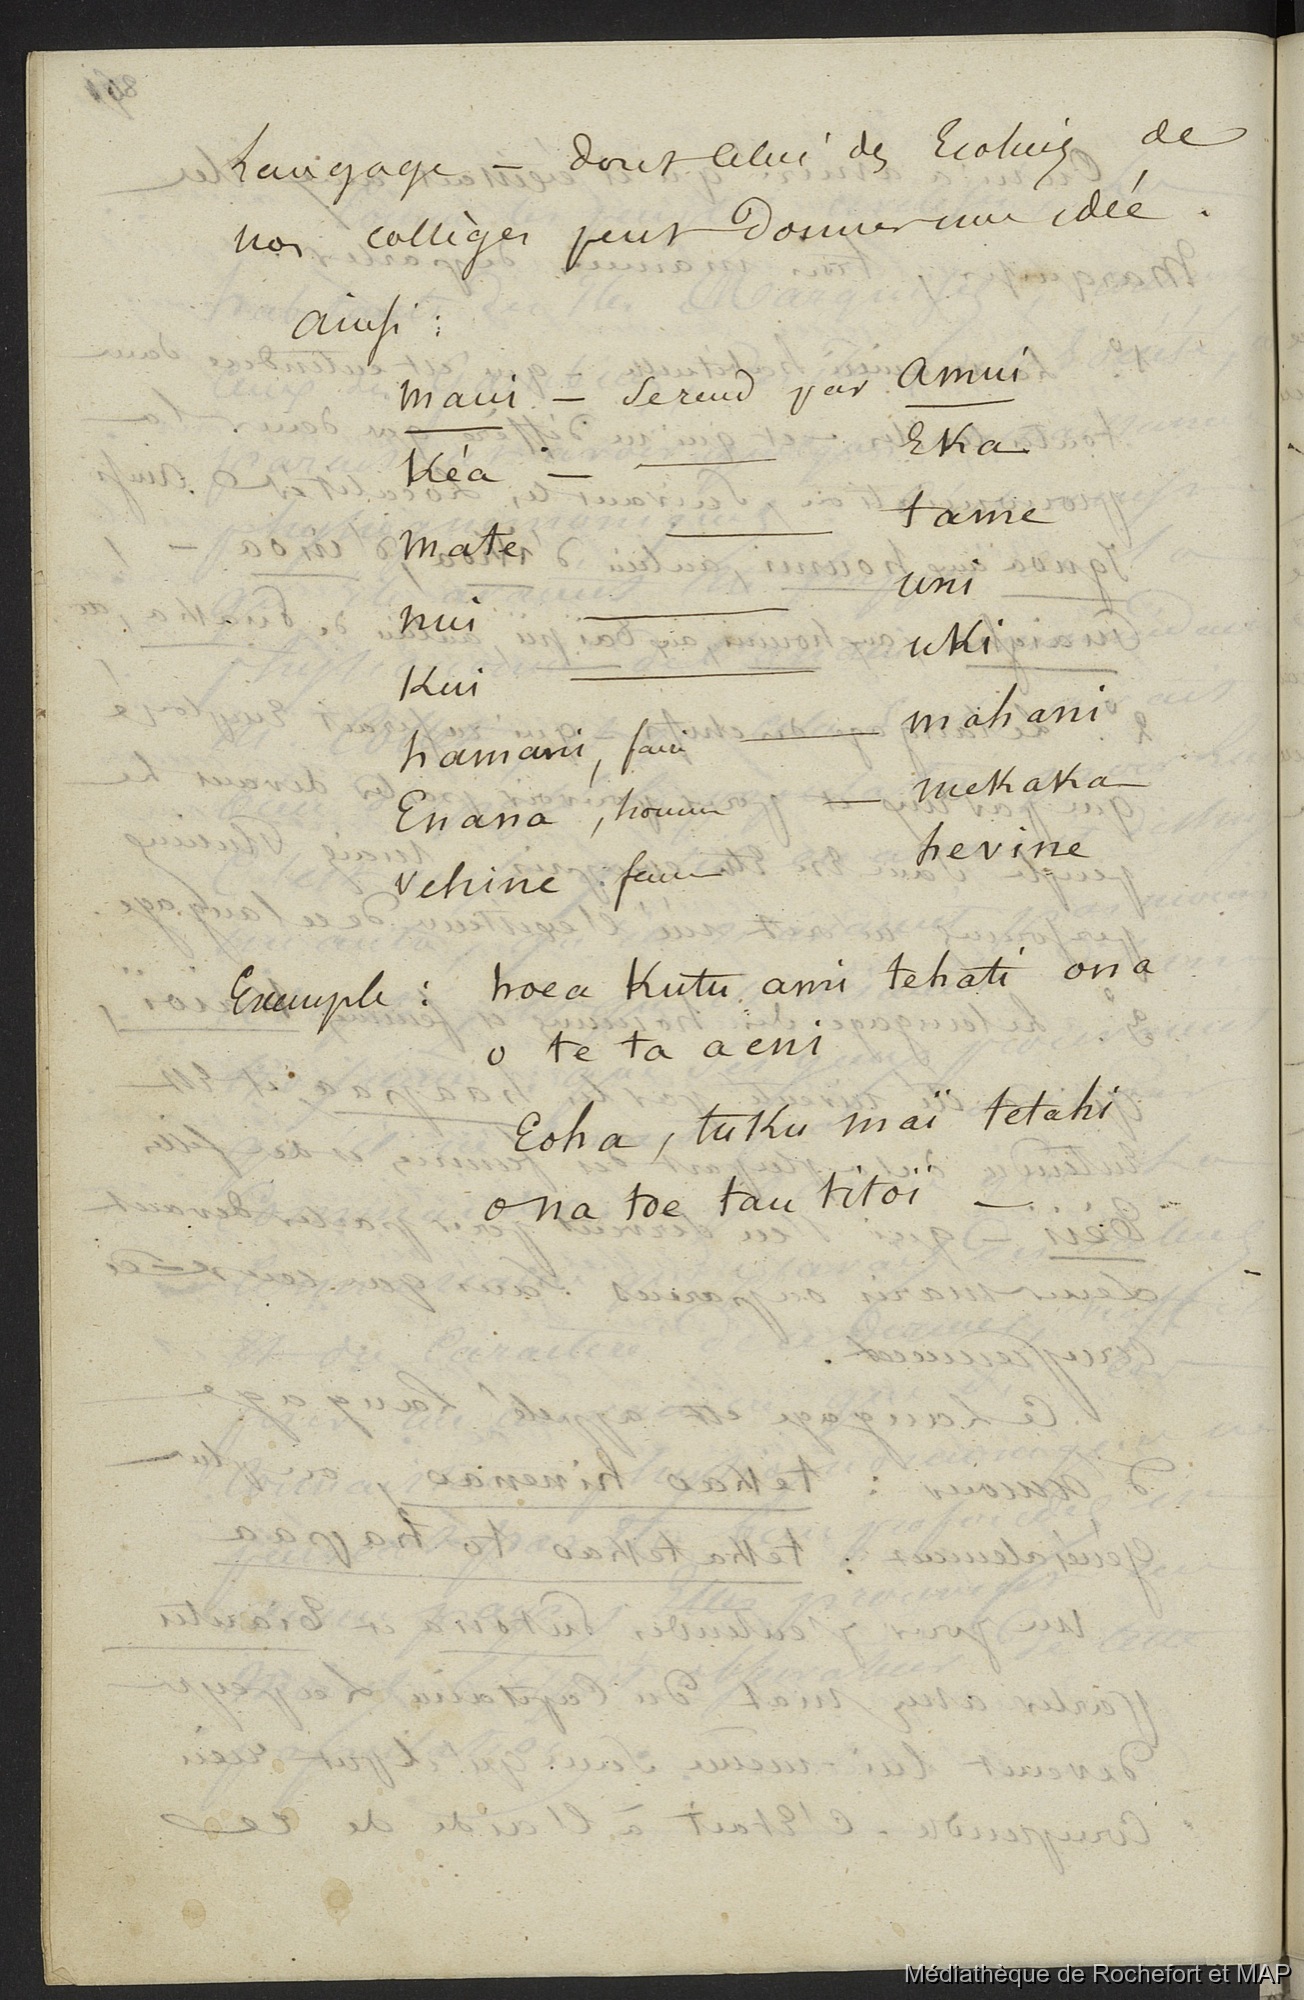 Langage — dont celui des Ecoliers de
nos collèges peut donner une idée.
ainsi :
maui — se rend par amui
Kéa — Eka
mate tame
nui uni
Kui uki
hamani, faire — mahani
Enana, homme — mekaka
vehine : femme hevine
Exemple : hoea Kutu ami tehati ona
o te ta aeni
Eoha, tuku maï tetahi
ona toe tau titoï —
Médiathèque de Rochefort et MAP